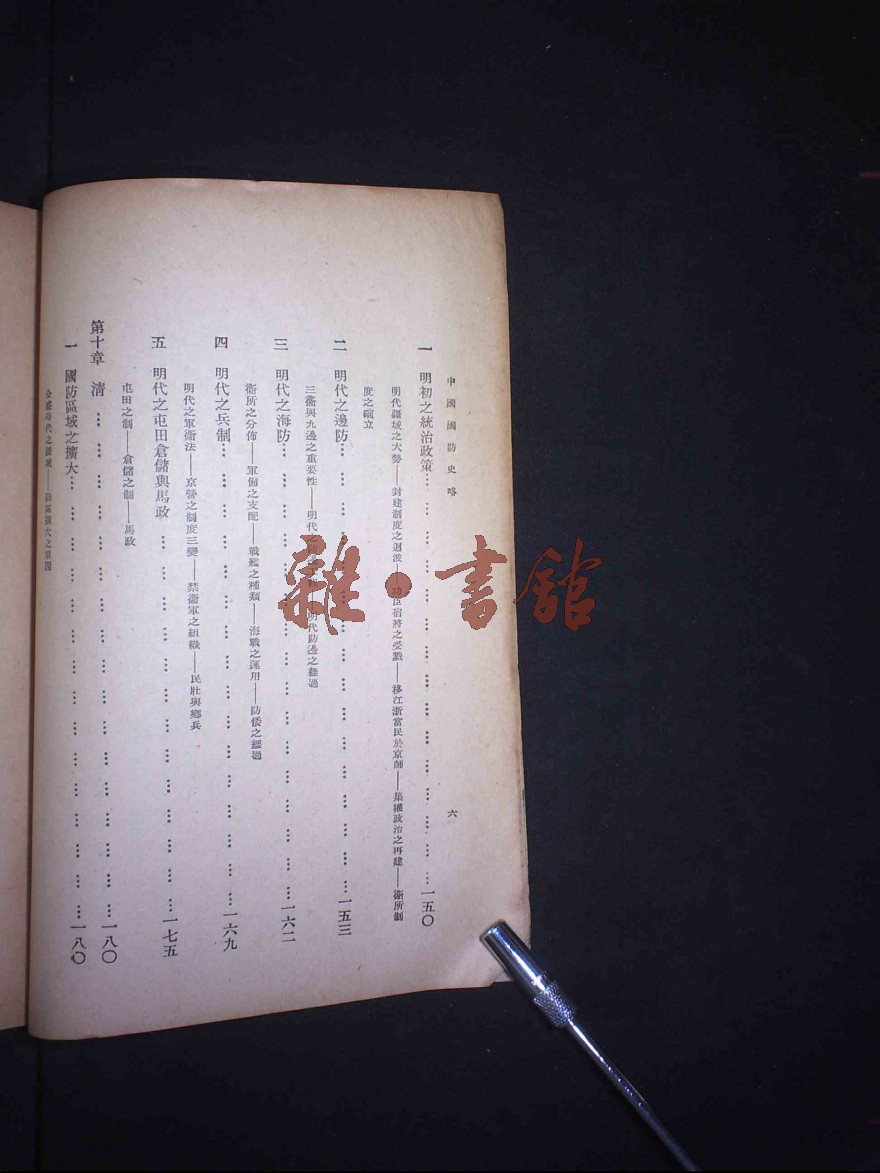 中國國防史略
六
一 明初之統治政策……一五〇
明代疆域之大勢——封建制度之迴波——功臣宿將之受戮——移江浙富民於京師——集權政治之再建——衛所制
度之確立
二 明代之邊防……一五三
三衛與九邊之重要性——明代 明代防邊之經過
三 明代之海防……一六二
衛所之分佈——軍備之支配——戰艦之種類——海戰之運用——防倭之經過
四 明代之兵制……一六九
明代之軍衛法——京營之制度三變——禁衛軍之組織——民壯與鄉兵
五 明代之屯田倉儲與馬政……一七五
屯田之制——倉儲之制——馬政
第十章 清……一八〇
一 國防區域之擴大……一八〇
全盛時代之疆域——防區擴大之原因
雜·書館